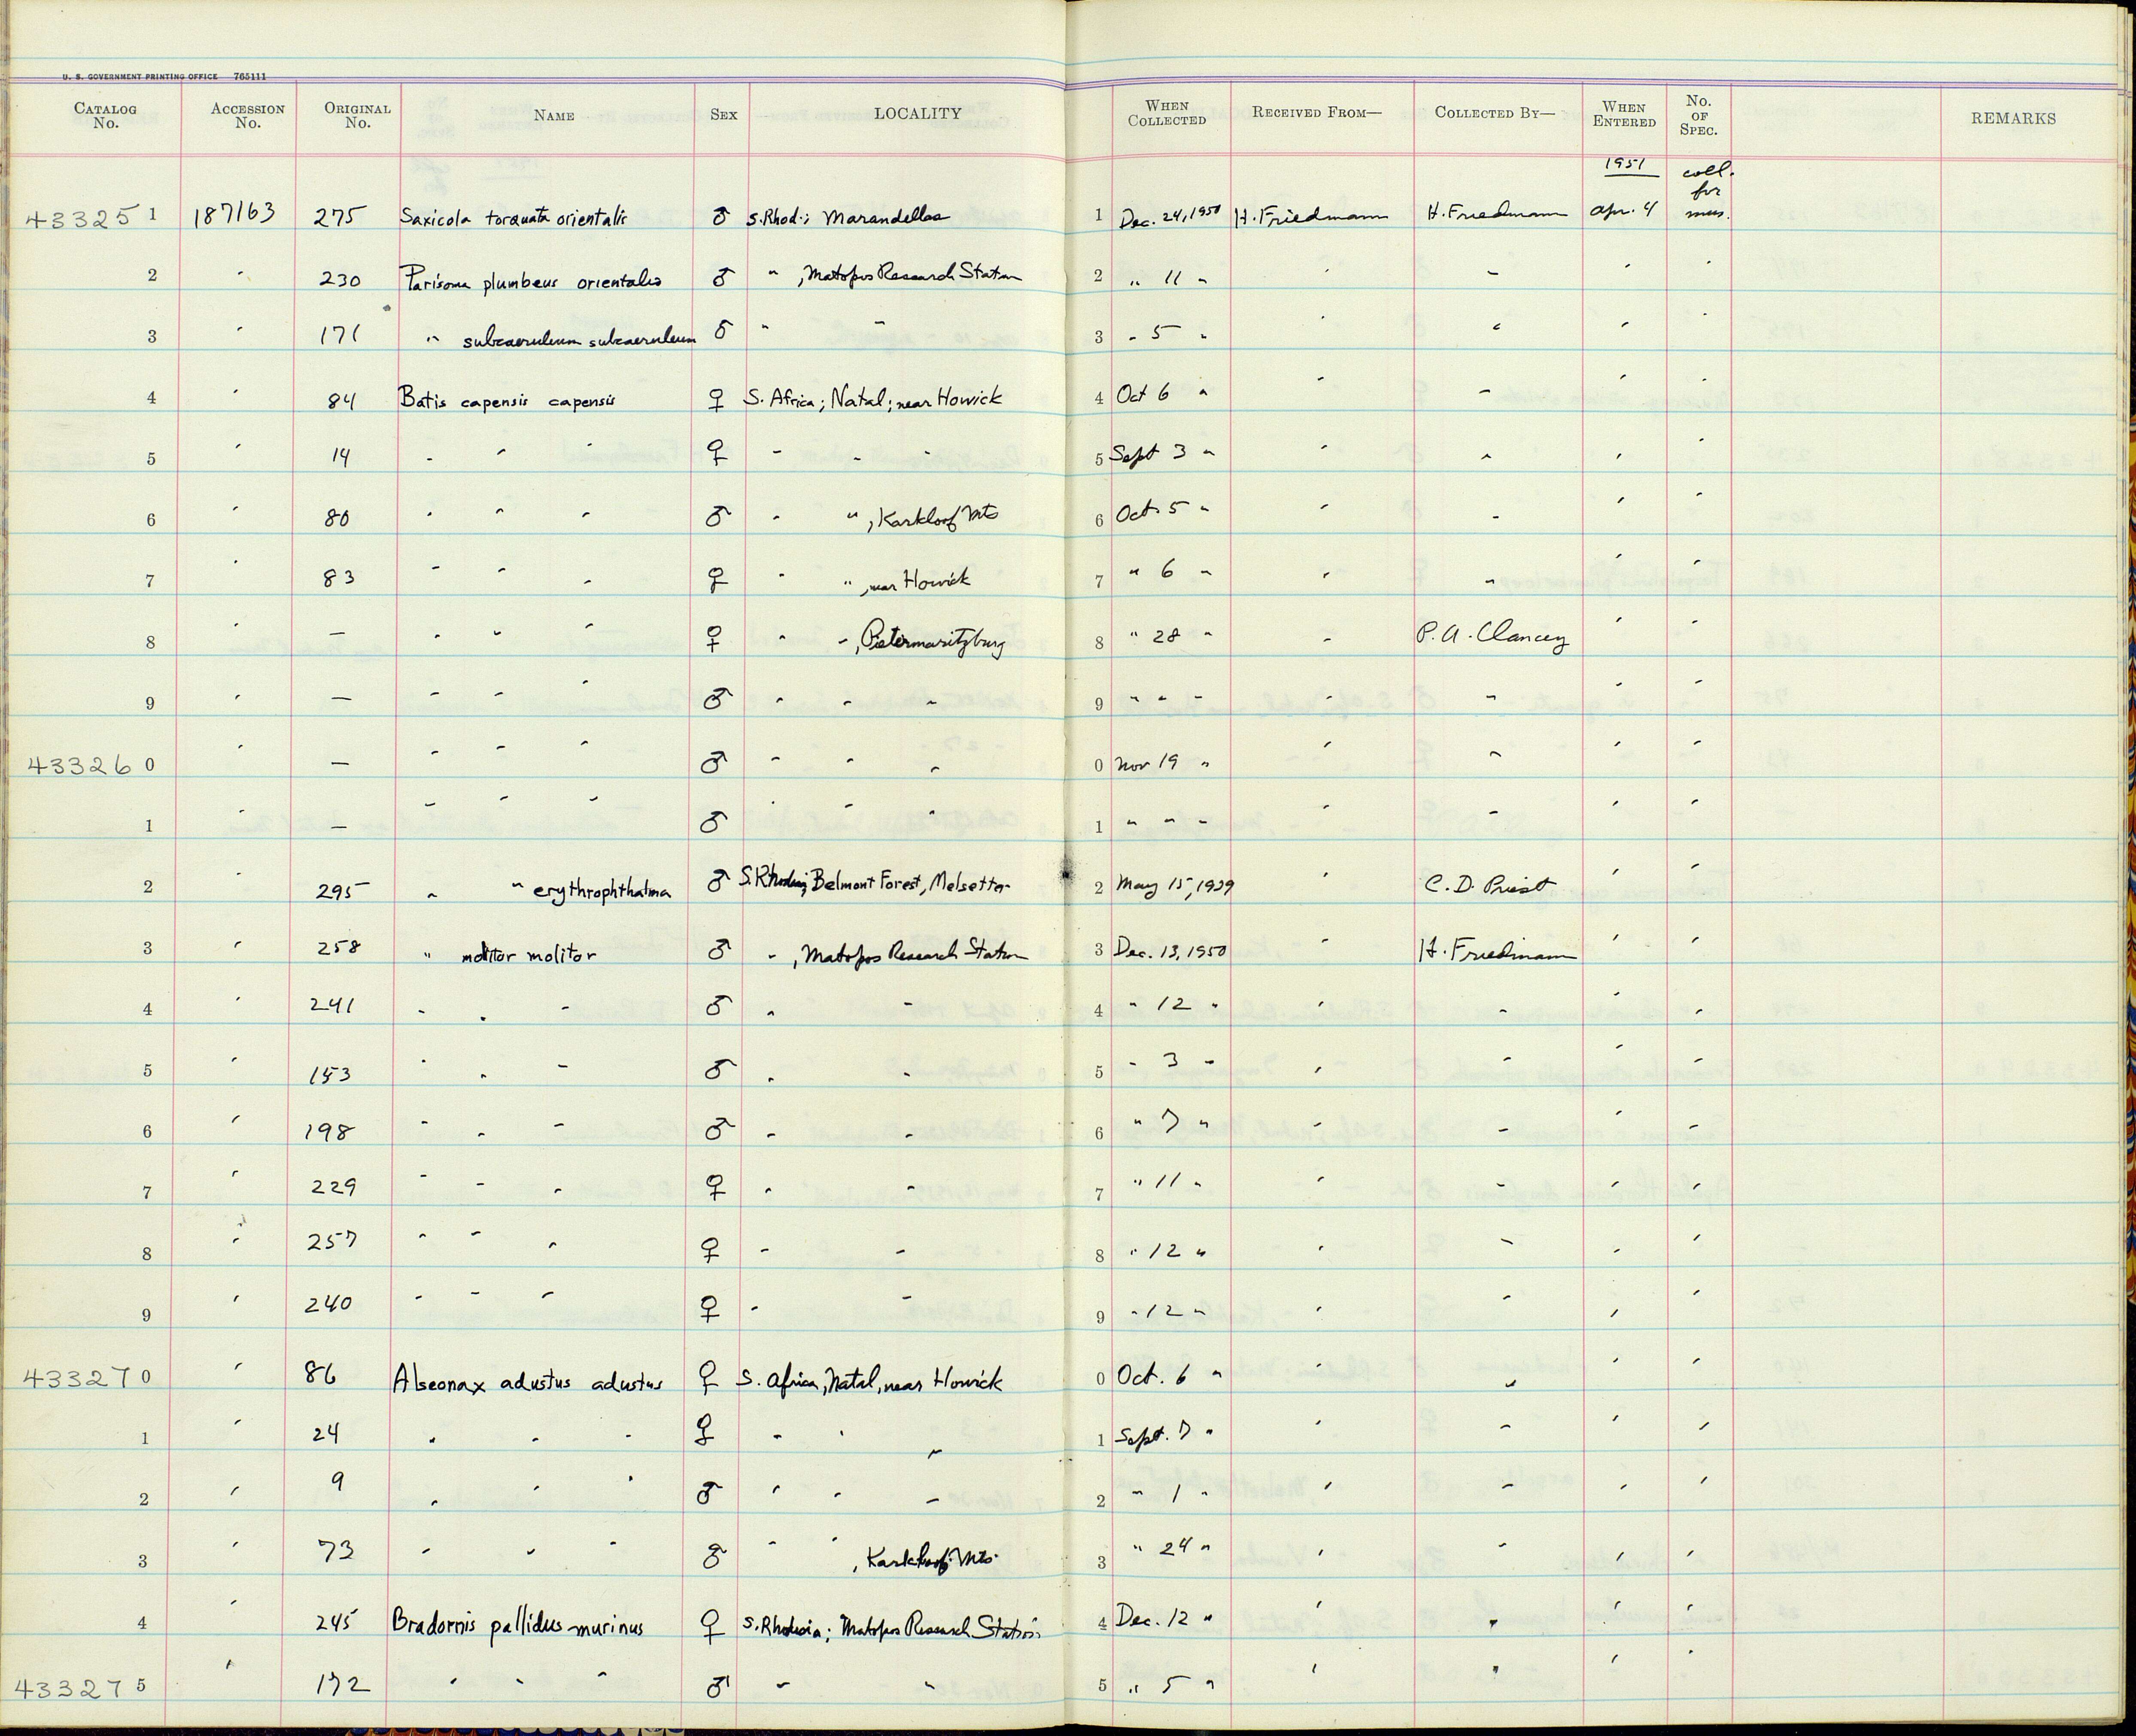 U. S. GOVERNMENT PRINTING OFFICE 765111
CATALOG No. ACCESSION No. ORIGINAL No. NAME SEX LOCALITY WHEN COLLECTED RECEIVED FROM— COLLECTED BY— WHEN ENTERED No. OF SPEC. REMARKS
1951 coll. for mus.
433251 187163 275 Saxicola torquata orientalis ♂ S. Rhod.; Marandellas 1 Dec. 24, 1950 H. Friedmann H. Friedmann Apr. 4
2 " 230 Parisoma plumbeus orientalis ♂ " , Matopos Research Station 2 " 11 " " " " "
3 " 171 " subcaeruleum subcaeruleum ♂ " " 3 " 5 " " " " "
4 " 84 Batis capensis capensis ♀ S. Africa; Natal; near Howick 4 Oct 6 " " " " "
5 " 14 " " " ♀ " " " 5 Sept 3 " " " " "
6 " 80 " " " ♂ " " , Karkloof Mts 6 Oct. 5 " " " " "
7 " 83 " " " ♀ " " , near Howick 7 " 6 " " " " "
8 " — " " " ♀ " " , Pietermaritzburg 8 " 28 " " P. A. Clancey " "
9 " — " " " ♂ " " " 9 " " " " " " "
433260 " — " " " ♂ " " " 0 Nov 19 " " " " "
1 " — " " " ♂ " " " 1 " " " " " " "
2 " 295 " " erythrophthalma ♂ S. Rhodesia; Belmont Forest, Melsetter 2 May 15, 1939 " C. D. Priest " "
3 " 258 " molitor molitor ♂ " , Matopos Research Station 3 Dec. 13, 1950 " H. Friedmann " "
4 " 241 " " " ♂ " " 4 " 12 " " " " "
5 " 153 " " " ♂ " " 5 " 3 " " " " "
6 " 198 " " " ♂ " " 6 " 7 " " " " "
7 " 229 " " " ♀ " " 7 " 11 " " " " "
8 " 257 " " " ♀ " " 8 " 12 " " " " "
9 " 240 " " " ♀ " " 9 " 12 " " " " "
433270 " 86 Alseonax adustus adustus ♀ S. Africa, Natal, near Howick 0 Oct. 6 " " " " "
1 " 24 " " " ♀ " " " 1 Sept. 7 " " " " "
2 " 9 " " " ♂ " " " 2 " 1 " " " " "
3 " 73 " " " ♂ " " , Karkloof Mts. 3 " 24 " " " " "
4 " 245 Bradornis pallidus murinus ♀ S. Rhodesia; Matopos Research Station 4 Dec. 12 " " " " "
433275 " 172 " " " ♂ " " 5 " 5 " " " " "